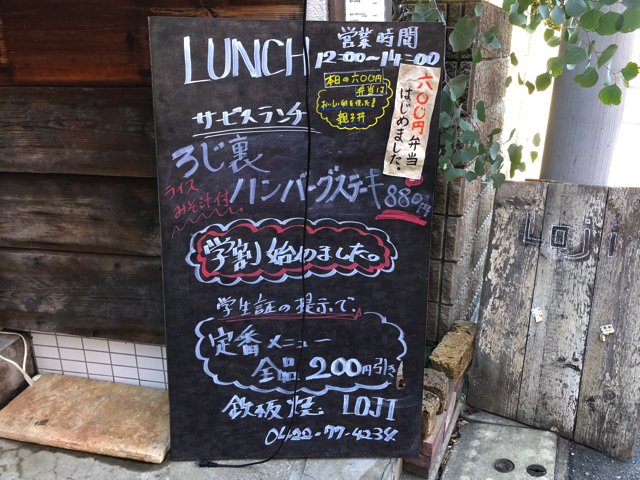 LUNCH
営業時間
12:00~14:00
本日の六〇〇円
弁当は
おいしい卵を使った!
親子丼
六〇〇円弁当
はじめました。
サービスランチ
ろじ裏
ハンバーグステーキ
880円
ライス・
みそ汁付
学割始めました。
学生証の提示で、
定番メニュー
全品 200円引き
鉄板焼 LOJI
0422-77-4238
Loji